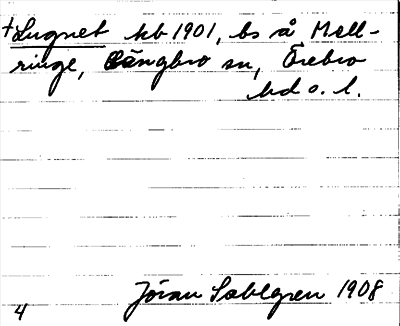 +Lugnet hb 1901, bs å Mell-
ringe, Längbro sn, Örebro
hd o. l.
Jöran Sahlgren 1908
4